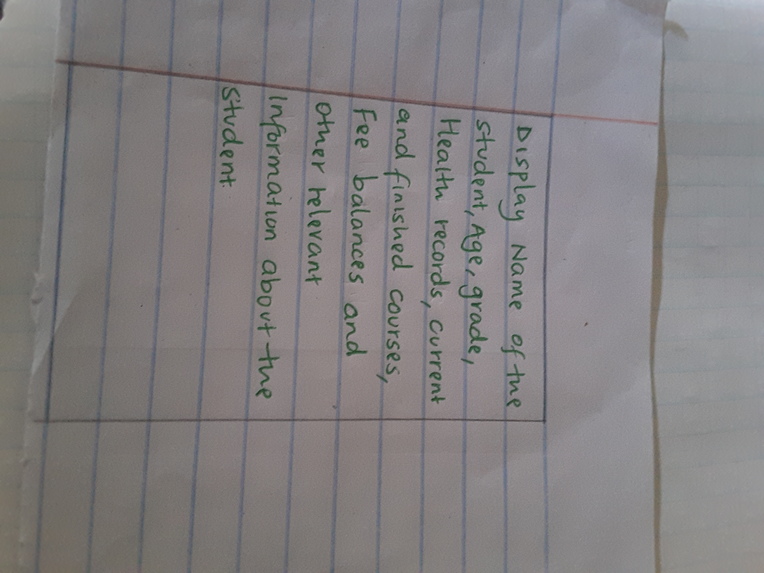 Display Name of the
student, Age, grade,
Health records, current
and finished courses,
Fee balances and
other relevant
Information about the
student.